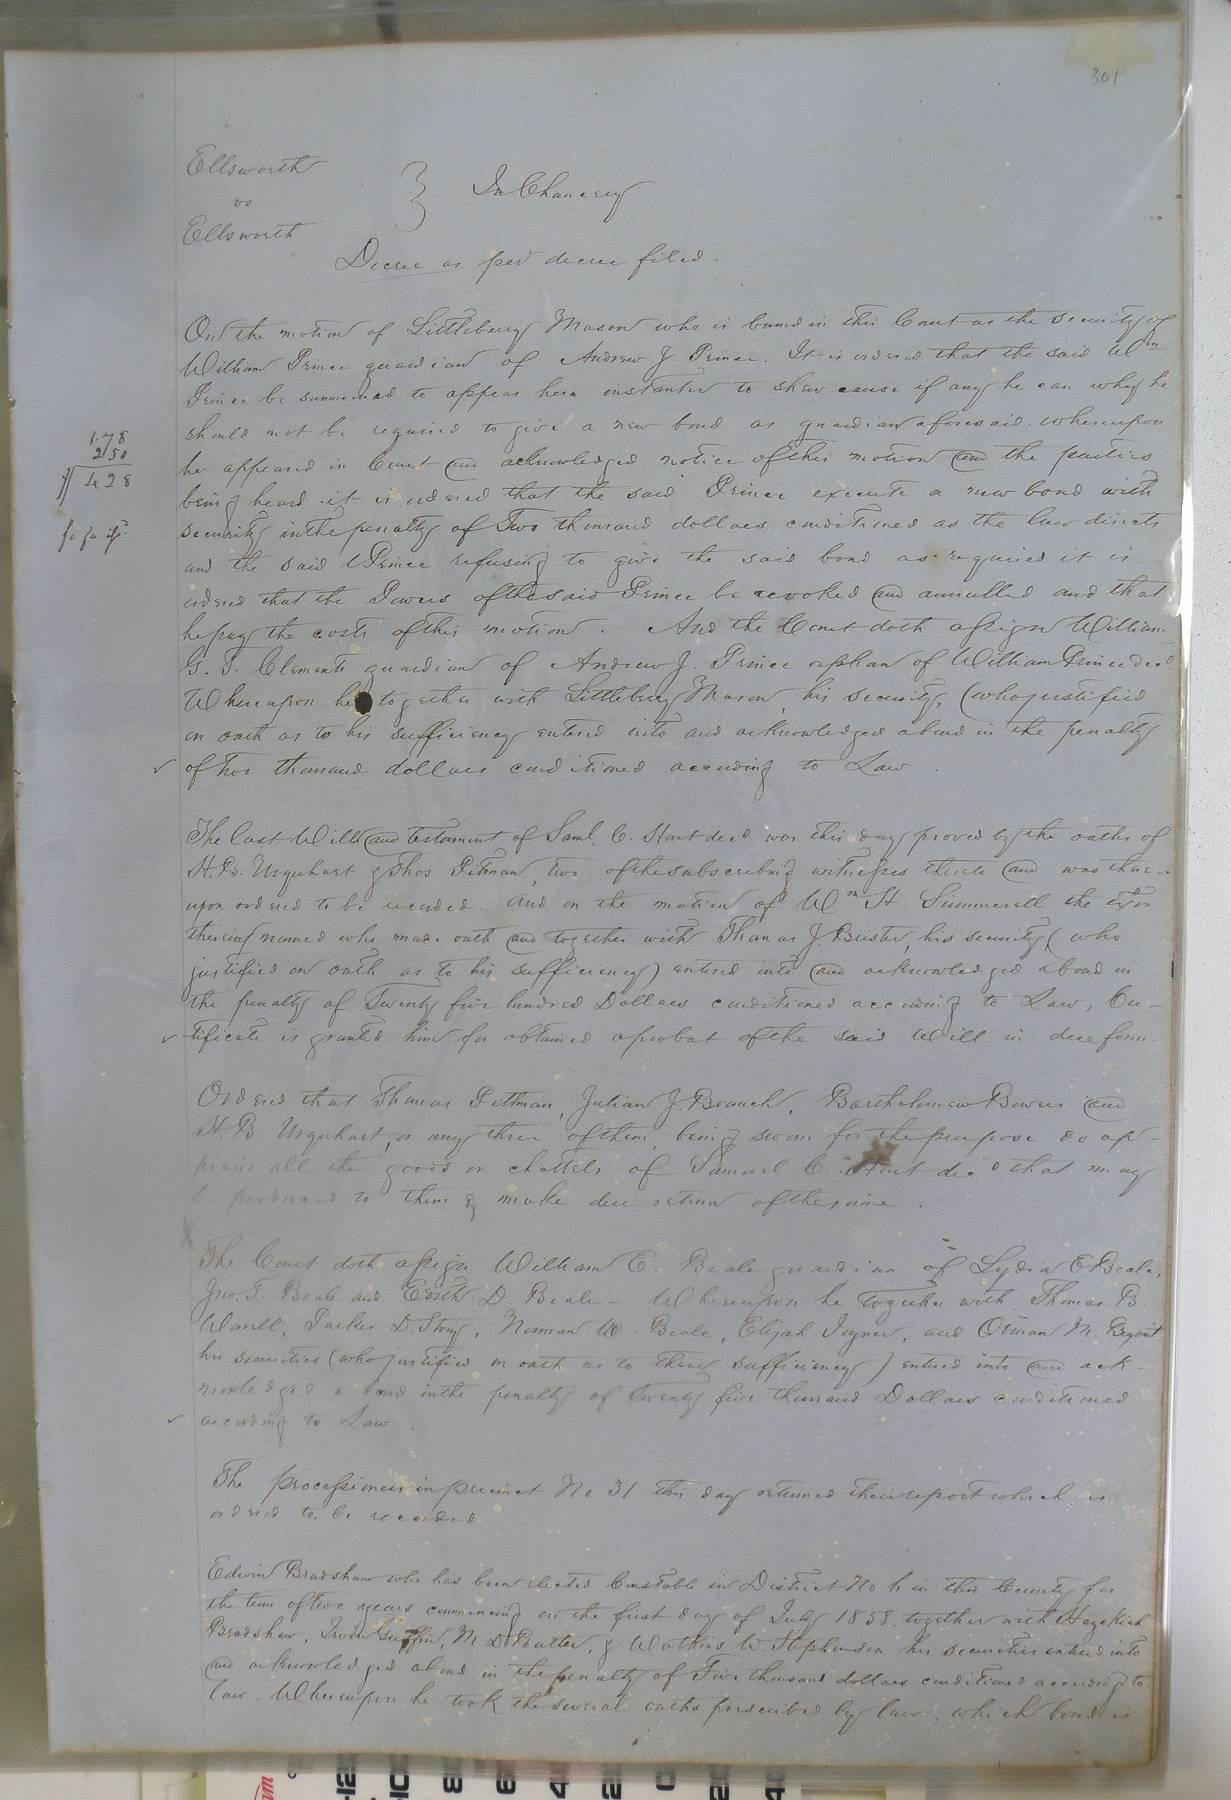 301
Ellsworth
vs } In Chancery
Ellsworth
Decree as per decree filed.
On the motion of Littlebury Mason who is bound in this Court as the security of
William Prince guardian of Andrew J. Prince. It is ordered that the said Wm
Prince be summoned to appear here instanter to shew cause if any he can why he
should not be required to give a new bond as guardian aforesaid. whereupon
1.78
2 50
he appeared in Court and acknowledged notice of this motion and the parties
4 28
being heard it is ordered that the said Prince execute a new bond with
security in the penalty of Two thousand dollars conditioned as the law directs
fi fa
and the said Prince refusing to give the said bond as required it is
ordered that the Powers of the said Prince be revoked and annulled and that
he pay the costs of this motion. And the Court doth assign William
G. S. Clements guardian of Andrew J. Prince orphan of William Prince decd.
Whereupon he together with Littlebury Mason, his security, (who justified
on oath as to his sufficiency entered into and acknowledged a bond in the penalty
of two thousand dollars conditioned according to Law.
The last Will and Testament of Saml. C. Hart decd was this day proved by the oaths of
H. B. Urquhart & Thos Pittman, two of the subscribing witnesses thereto and was there-
upon ordered to be recorded. And on the motion of Wm H. Summerell the Exor
therein named who made oath and together with Thomas J. Brister, his security, (who
justified on oath as to his sufficiency) entered into and acknowledged a bond in
the penalty of Twenty five hundred Dollars conditioned according to Law, Cer-
tificate is granted him for obtained a probat of the said Will in due form.
Ordered that Thomas Pittman, Julian J. Branch, Bartholomew Bowers and
H. B. Urquhart, or any three of them, being sworn for the purpose do ap-
praise all the goods or chattels of Samuel C. Hart decd that may
be produced to them & make due return of the same.
The Court doth assign William E. Beale guardian of Lydia E Beale,
Jno. T. Beale and Edith D. Beale - Whereupon he together with Thomas B.
Worrell, Parker D. Story, Norman W. Beale, Elijah Joyner, and Orman M. Bryant
his securities (who justified on oath as to their sufficiency) entered into and ack-
nowledged a bond in the penalty of twenty five thousand Dollars conditioned
according to Law.
The processioners in precinct No 31 this day returned their report which is
ordered to be recorded
Edwin Bradshaw who has been elected Constable in District No 6 in this County for
the term of two years commencing on the first day of July 1858. together with Hezekiah
Bradshaw, Irvin Griffin, M. D. Butter, & Watkins W. Stephenson his securities entered into
and acknowledged a bond in the penalty of Five thousand dollars conditioned according to
law. Whereupon he took the several oaths prescribed by law, which bond is